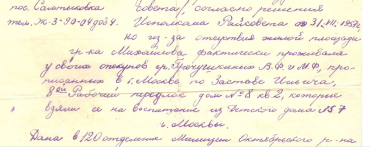 пос. Салтыковка Совета, согласно решения
тел. Ж-3-90-04 доб 4. Исполкома Райсовета от 31.XII.1957г.
но из-за отсутствия жилой площади
гр-ка Михайлова фактически проживала
у своих опекунов гр. В.Ф и М.Ф, про-
писанных в г. Москве по Заставе Ильича,
8ой Рабочий переулок дом № 8 кв 2, которые
взяли её на воспитание из Детского дома № 57
г. Москвы.
Дана в 120 отделение Милиции Октябрьского р-на